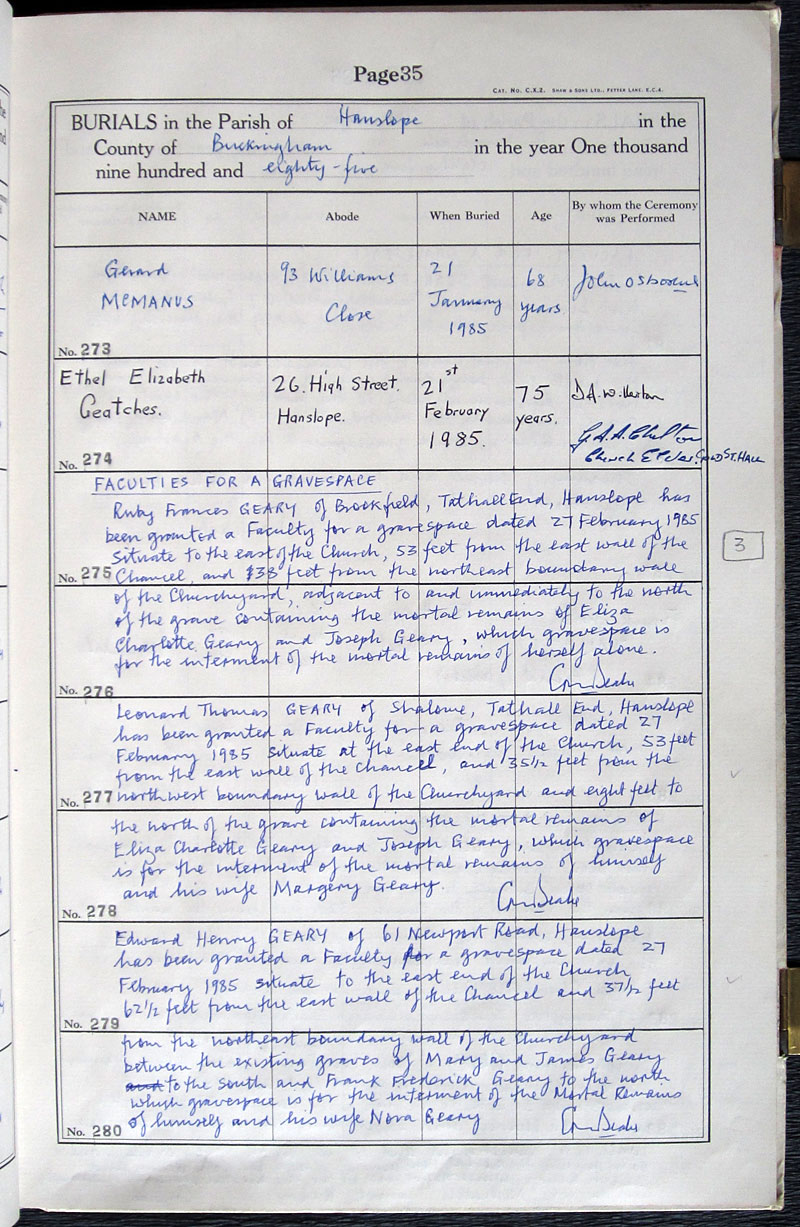 Page35
CAT. NO. C.X.2. SHAW & SONS LTD., FETTER LANE, E.C.4.
BURIALS in the Parish of Hanslope in the
County of Buckingham in the year One thousand
nine hundred and eighty-five
NAME Abode When Buried Age By whom the Ceremony was Performed
Gerard 93 Williams 21 68 John Osborne
MCMANUS Close January years
1985
No. 273
Ethel Elizabeth 26. High Street. 21st 75
Geatches. Hanslope. February years.
1985.
Church Elder
No. 274
FACULTIES FOR A GRAVESPACE
Ruby Frances GEARY of Brookfield, Tathall End, Hanslope has
been granted a Faculty for a gravespace dated 27 February 1985
situate to the east of the Church, 53 feet from the east wall of the
3
No. 275 Chancel, and 38 feet from the northeast boundary wall
of the Churchyard, adjacent to and immediately to the north
of the grave containing the mortal remains of Eliza
Charlotte Geary and Joseph Geary, which gravespace is
for the interment of the mortal remains of herself alone.
No. 276
Leonard Thomas GEARY of Shalome, Tathall End, Hanslope
has been granted a Faculty for a gravespace dated 27
February 1985 situate at the east end of the Church, 53 feet
from the east wall of the Chancel, and 35 1/2 feet from the
No. 277 northwest boundary wall of the Churchyard and eight feet to
the north of the grave containing the mortal remains of
Eliza Charlotte Geary and Joseph Geary, which gravespace
is for the interment of the mortal remains of himself
and his wife Margery Geary.
No. 278
Edward Henry GEARY of 61 Newport Road, Hanslope
has been granted a Faculty for a gravespace dated 27
February 1985 situate to the east end of the Church
62 1/2 feet from the east wall of the Chancel and 37 1/2 feet
No. 279
from the northeast boundary wall of the Churchyard
between the existing graves of Mary and James Geary
and to the South and Frank Frederick Geary to the north
which gravespace is for the interment of the Mortal Remains
No. 280 of himself and his wife Nora Geary